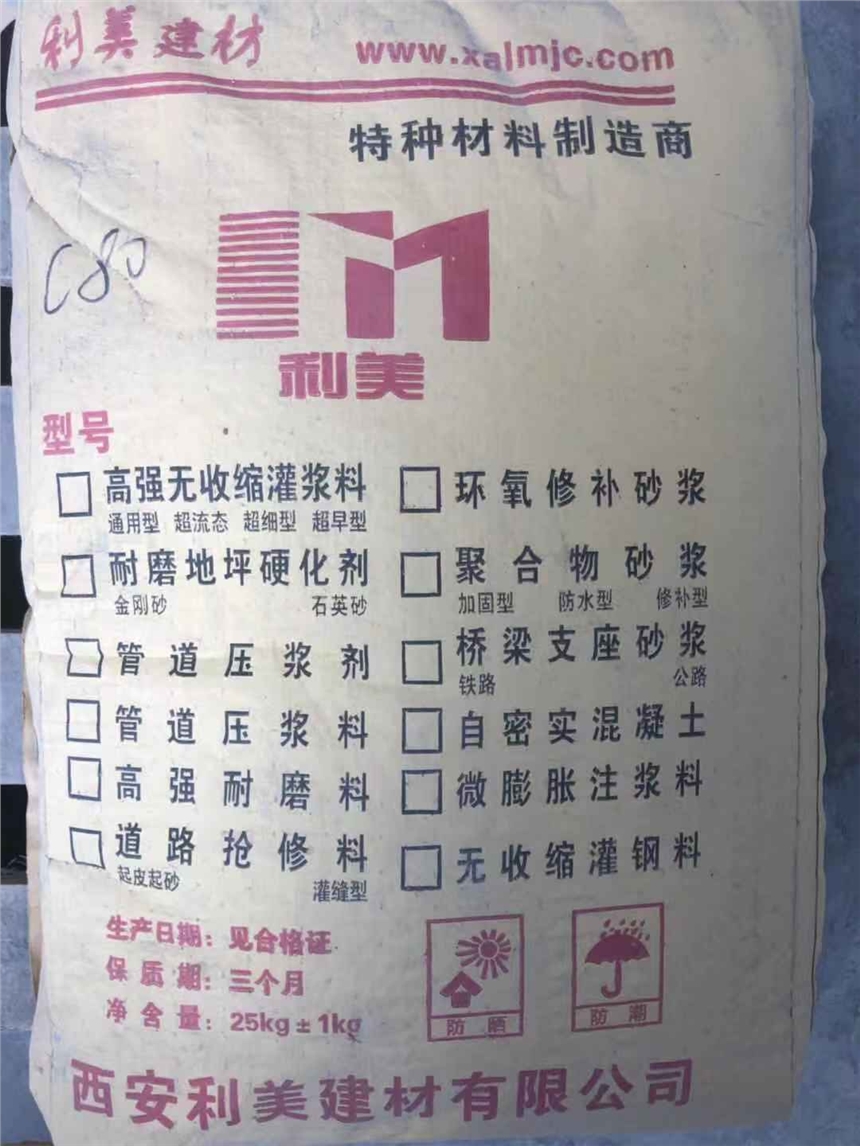 利美建材 www.xalmjc.com
特种材料制造商
C80
利美
型号
高强无收缩灌浆料
通用型 超流态 超细型 超早型
环氧修补砂浆
耐磨地坪硬化剂
金刚砂 石英砂
聚合物砂浆
加固型 防水型 修补型
管道压浆剂
桥梁支座砂浆
铁路 公路
管道压浆料
自密实混凝土
高强耐磨料
微膨胀注浆料
道路抢修料
起皮起砂 灌缝型
无收缩灌钢料
生产日期：见合格证
保质期：三个月
净含量：25kg±1kg
防晒
防潮
西安利美建材有限公司